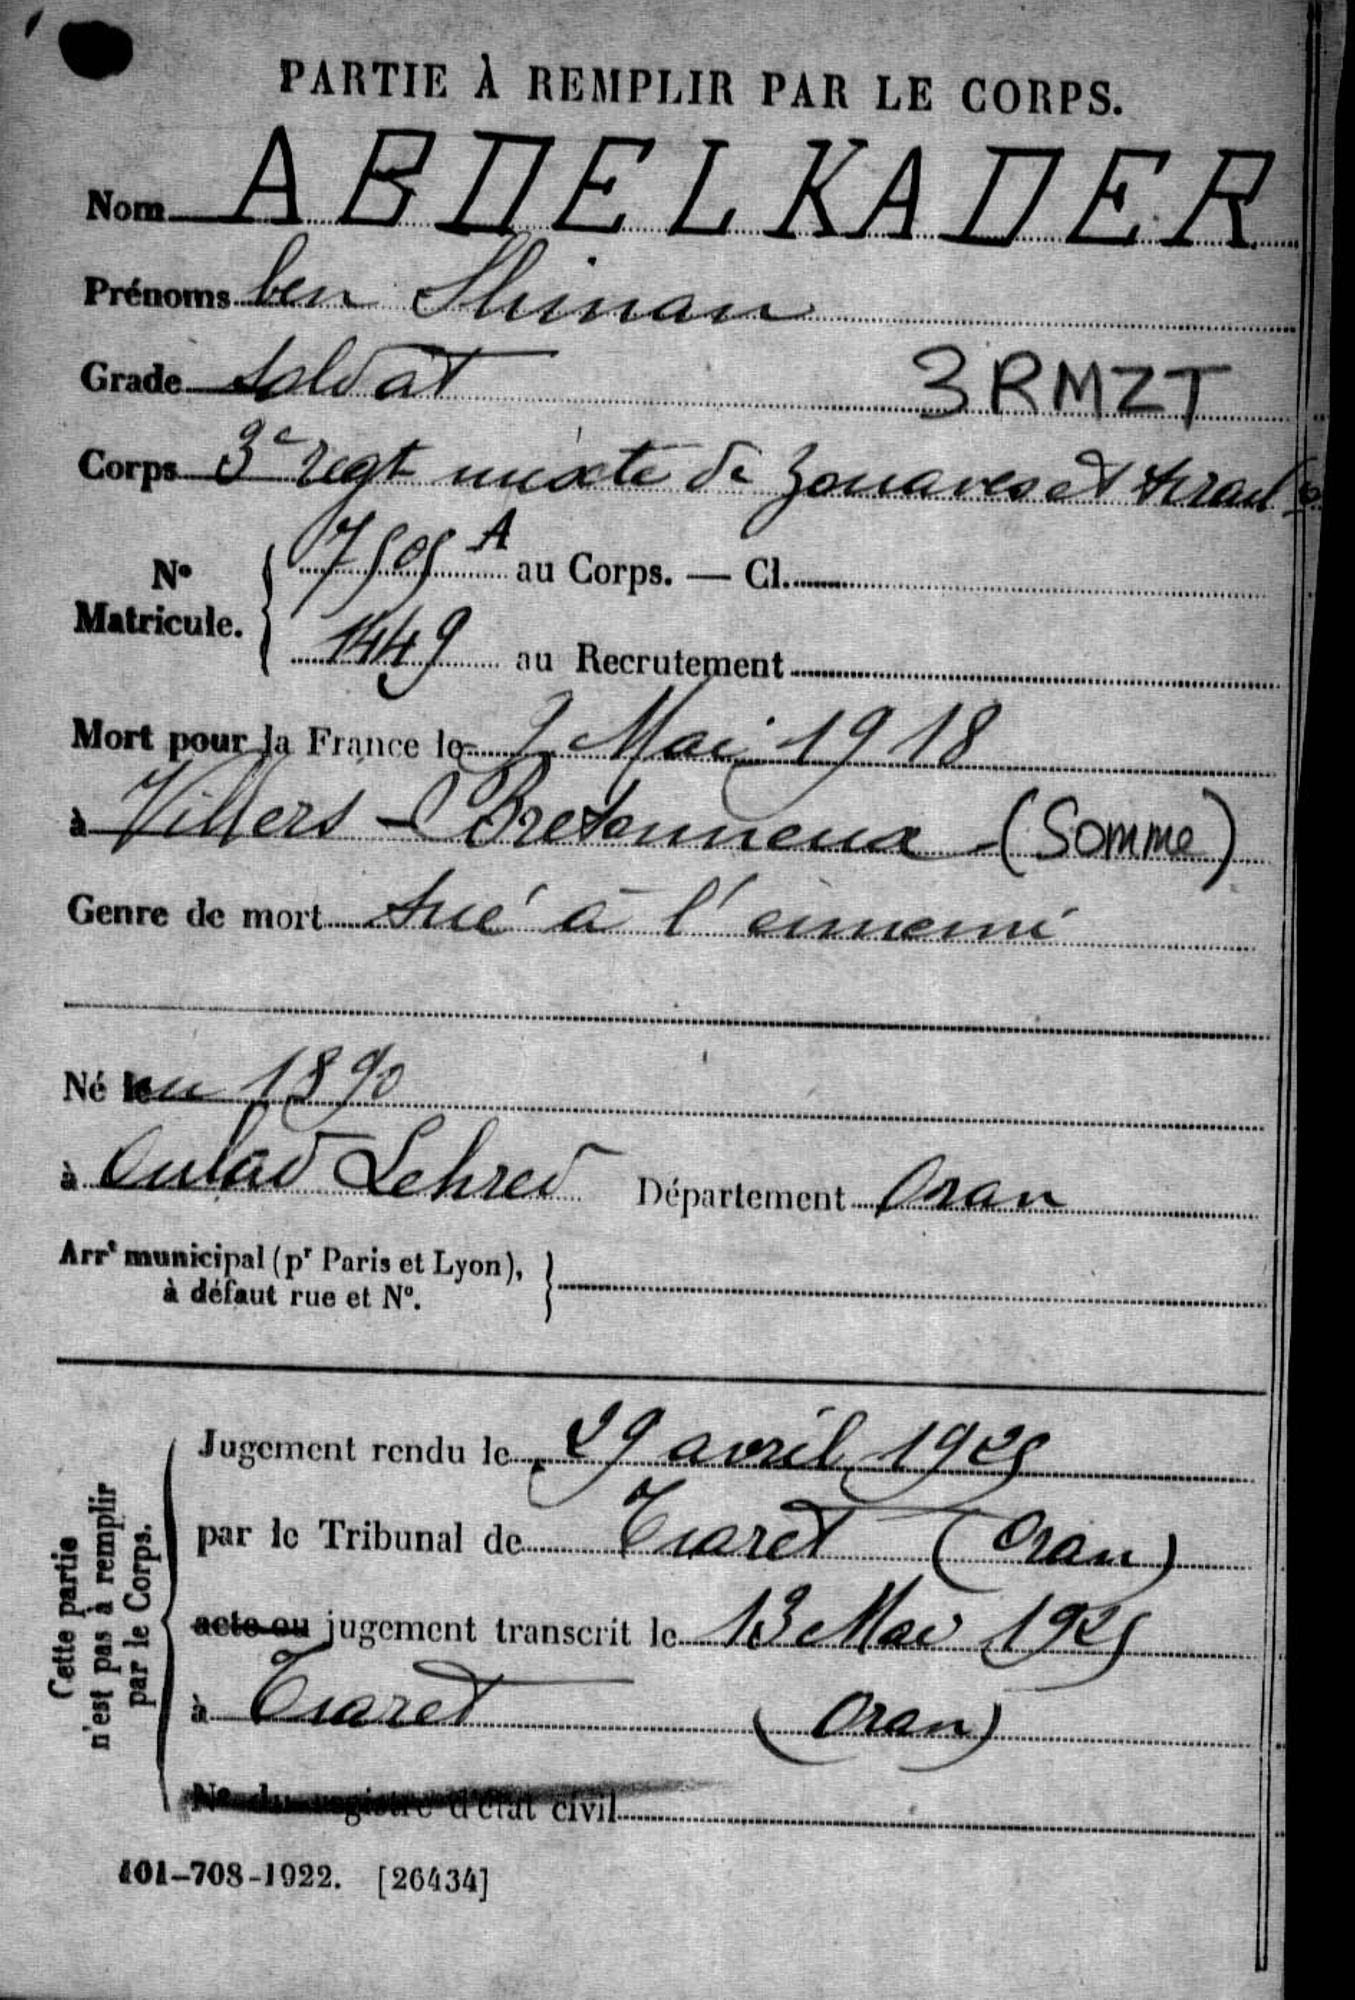 PARTIE À REMPLIR PAR LE CORPS.
Nom ABDELKADER
Prénoms ben Sliman
Grade soldat 3RMZT
Corps 3e regt mixte de zouaves et tiraill
N° Matricule.
7505 A au Corps. — Cl.
1449 au Recrutement
Mort pour la France le 9 Mai 1918
à Villers-Bretonneux (Somme)
Genre de mort tué à l'ennemi
Né en 1890
à Oulad Lehred Département Oran
Arrt municipal (pr Paris et Lyon),
à défaut rue et N°.
Cette partie
n'est pas à remplir
par le Corps.
Jugement rendu le 29 avril 1925
par le Tribunal de Tiaret (Oran)
acte ou jugement transcrit le 13 Mai 1925
à Tiaret (Oran)
N° du registre d'état civil
101-708-1922. [26434]